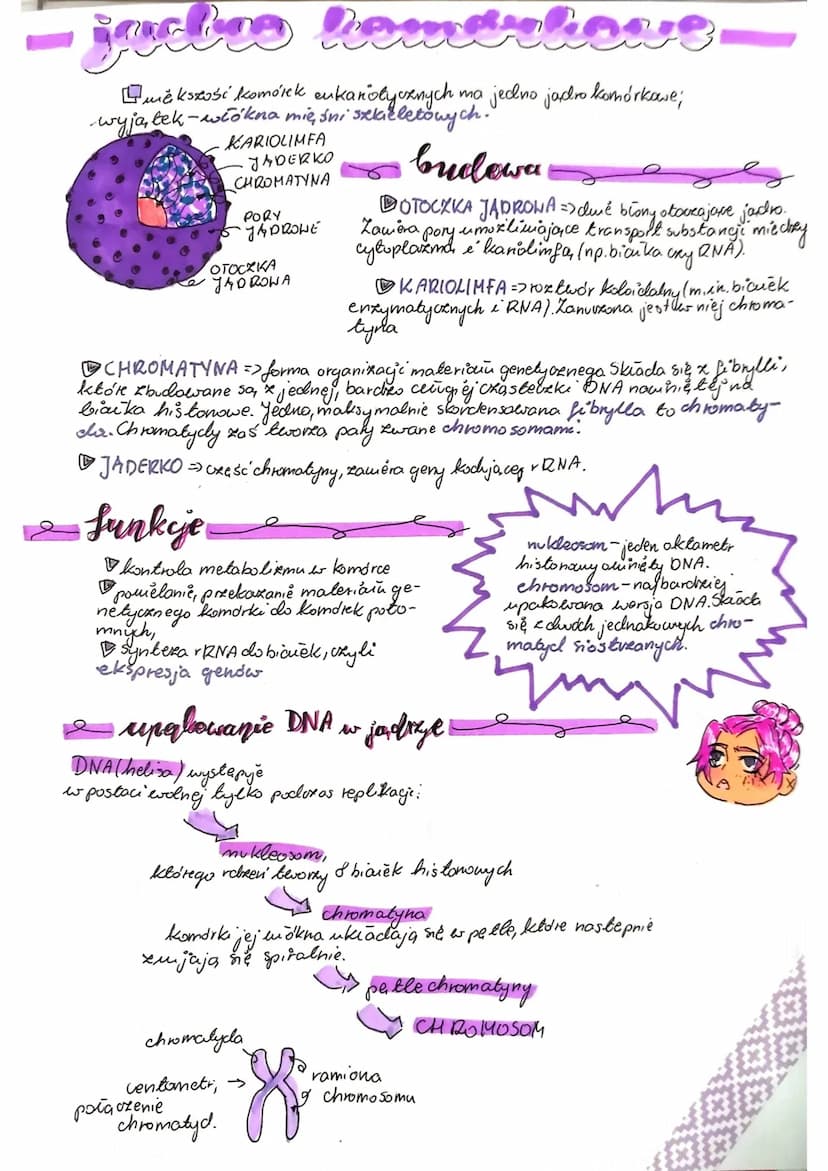 jądro komórkowe
większość komórek eukariotycznych ma jedno jądro komórkowe;
wyjątek - włókna mięśni szkieletowych.
KARIOLIMFA
JĄDERKO
CHROMATYNA
PORY
JĄDROWE
OTOCZKA
JĄDROWA
budowa
OTOCZKA JĄDROWA => dwie błony otaczające jądro.
Zawiera pory umożliwiające transport substancji między
cytoplazmą a kariolimfą (np. białka czy RNA).
KARIOLIMFA => roztwór koloidalny (m.in. białek
enzymatycznych i RNA). Zanurzona jest w niej chroma-
tyna
CHROMATYNA => forma organizacji materiału genetycznego. Składa się z fibrylli,
które zbudowane są z jednej, bardzo długiej cząsteczki DNA nawiniętej na
białka histonowe. Jedna, maksymalnie skondensowana fibrylla to chromaty-
da. Chromatydy zaś tworzą pary zwane chromosomami.
JĄDERKO => część chromatyny, zawiera geny kodującej rRNA.
funkcje
kontrola metabolizmu w komórce
powielanie, przekazanie materiału ge-
netycznego komórki do komórek poto-
mnych,
synteza rRNA do białek, czyli
ekspresja genów
nukleosom - jeden oktametr
histonowy owinięty DNA.
chromosom - najbardziej
upakowana wersja DNA. Składa
się z dwóch jednakowych chro-
matyd siostrzanych.
upakowanie DNA w jądrze
DNA (helisa) występuje
w postaci wolnej tylko podczas replikacji:
nukleosom,
którego rdzeń tworzy 8 białek histonowych
chromatyna
komórki jej włókna układają się w pętle, które następnie
zwijają się spiralnie.
pętle chromatyny
CHROMOSOM
chromatyda
centometr,
połączenie
chromatyd.
ramiona
chromosomu